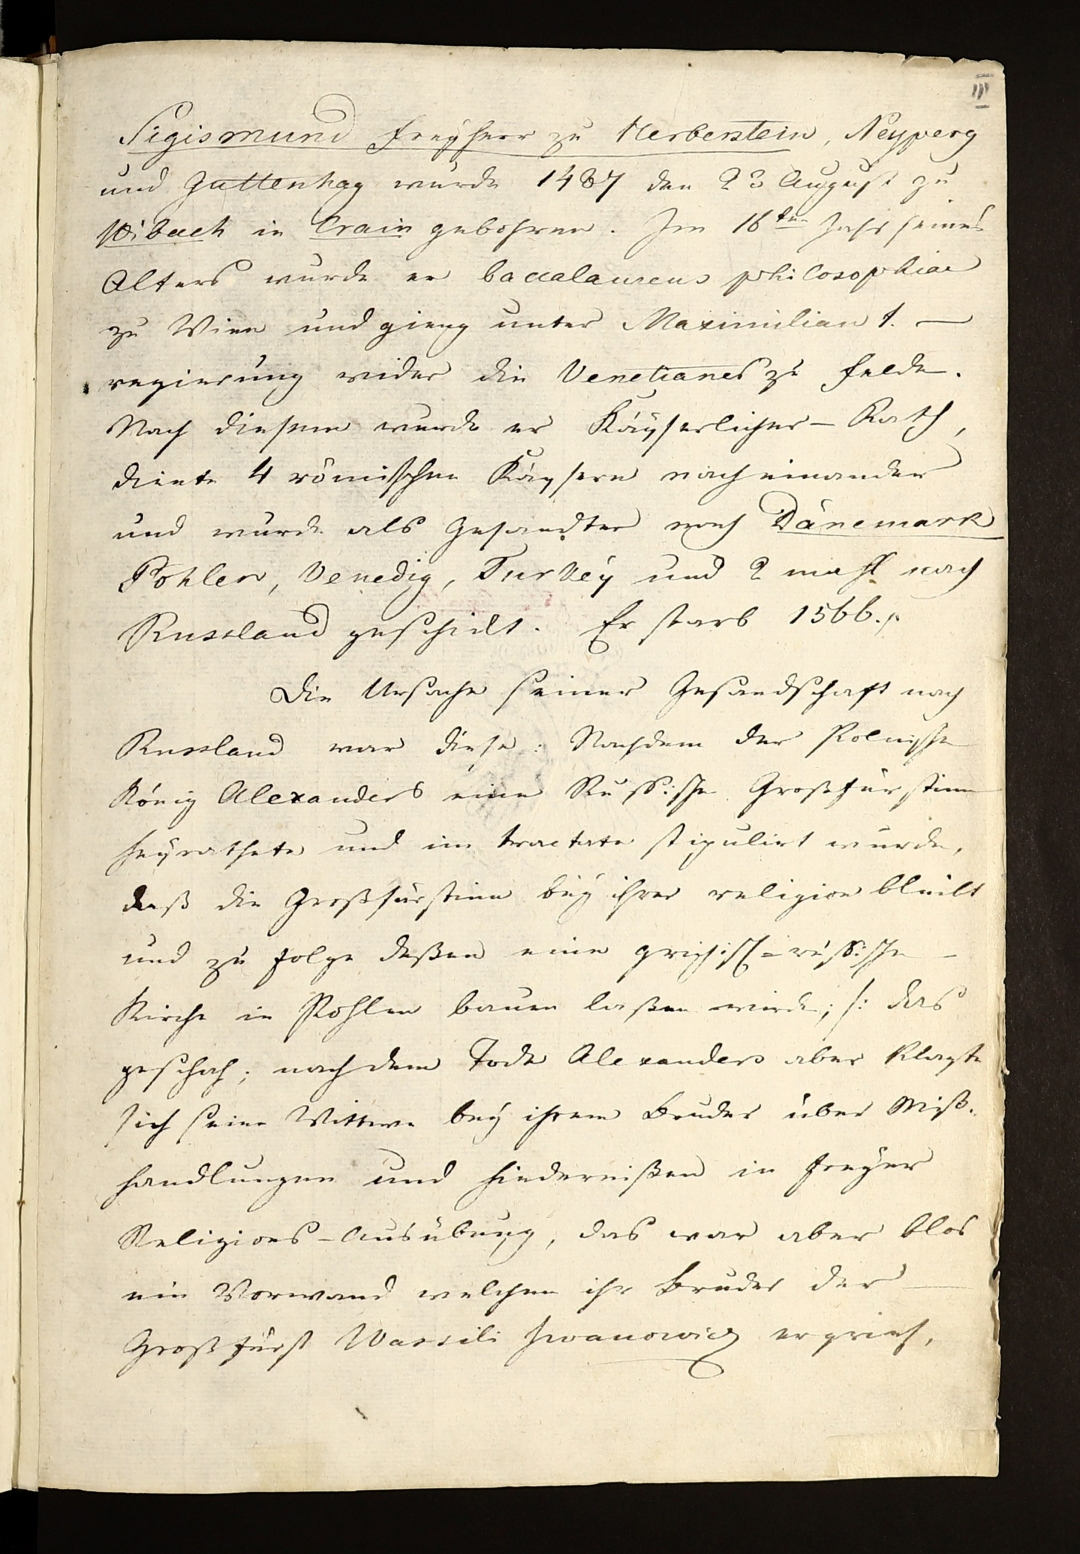 III
Sigismund Freyherr zu Herberstein, Neyperg
und Guttenhag wurde 1487 den 23 August zu
Wibach in Crain gebohren. Im 16ten Jahr seines
Alters wurde er baccalaureus philosophiae
zu Wien und gieng unter Maximilian 1. —
regierung wider die Venetianer zu Felde.
Nach diesem wurde er Kayserlicher – Rath,
diente 4 römischen Kaysern nach einander
und wurde als Gesandter nach Dänemark
Pohlen, Venedig, Turkey und 2 mahl nach
Russland geschickt. Er starb 1566.
Die Ursache seiner Gesandschaft nach
Russland war diese: Nachdem der Polnische
König Alexanders eine Russische Großfürstinn
heyrathete und im tractate stipulirt wurde,
daß die Großfürstinn bey ihrer religion bleibt
und zu folge deßen eine grichisch=russische –
Kirche in Pohlen bauen laßen wird; /: das
geschah; nach dem Tode Alexanders aber klagte
sich seine Wittwe bey ihrem Bruder über Miß-
handlungen und hindernißen in freyer
Religions-Ausübung, das war aber blos
ein Vorwand welchen ihr Bruder der —
Großfürst Wassili Iwanowicz ergrief,